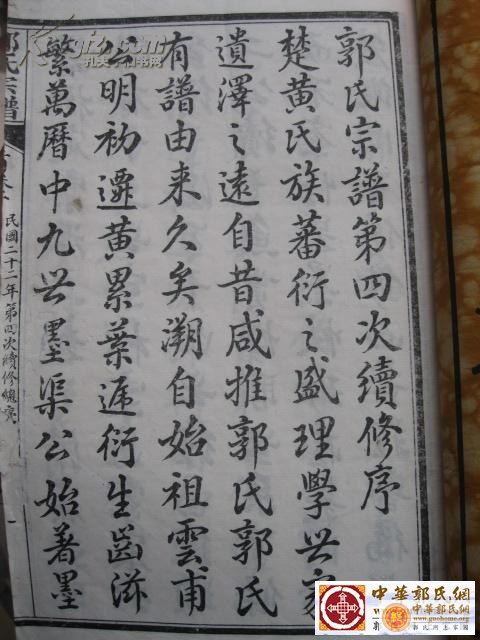 郭氏宗譜第四次續修序
楚黄氏族蕃衍之盛理學世家
遺澤之遠自昔咸推郭氏郭氏
有譜由来久矣溯自始祖雲甫
公明初遷黄累葉遞衍生齒滋
繁萬曆中九世墨渠公始著墨
郭氏宗譜
民國二十二年第四次續修總賓
中華郭氏網
www.guohome.org